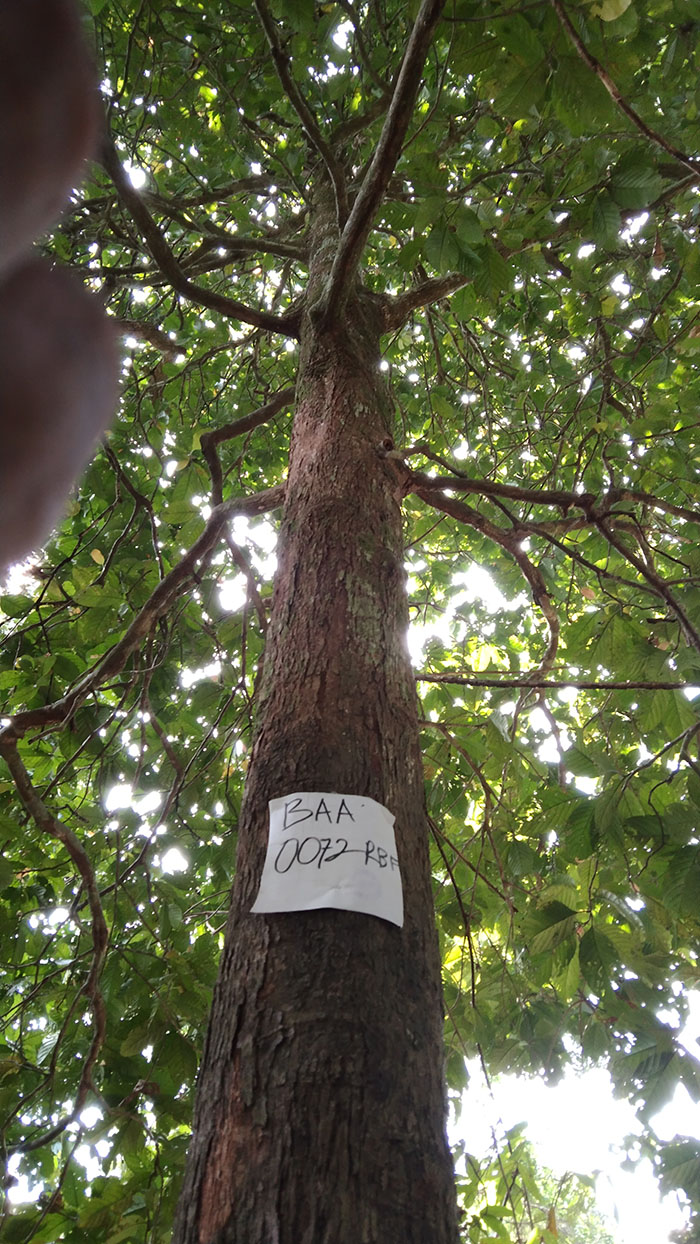 BAA
0072 RBF